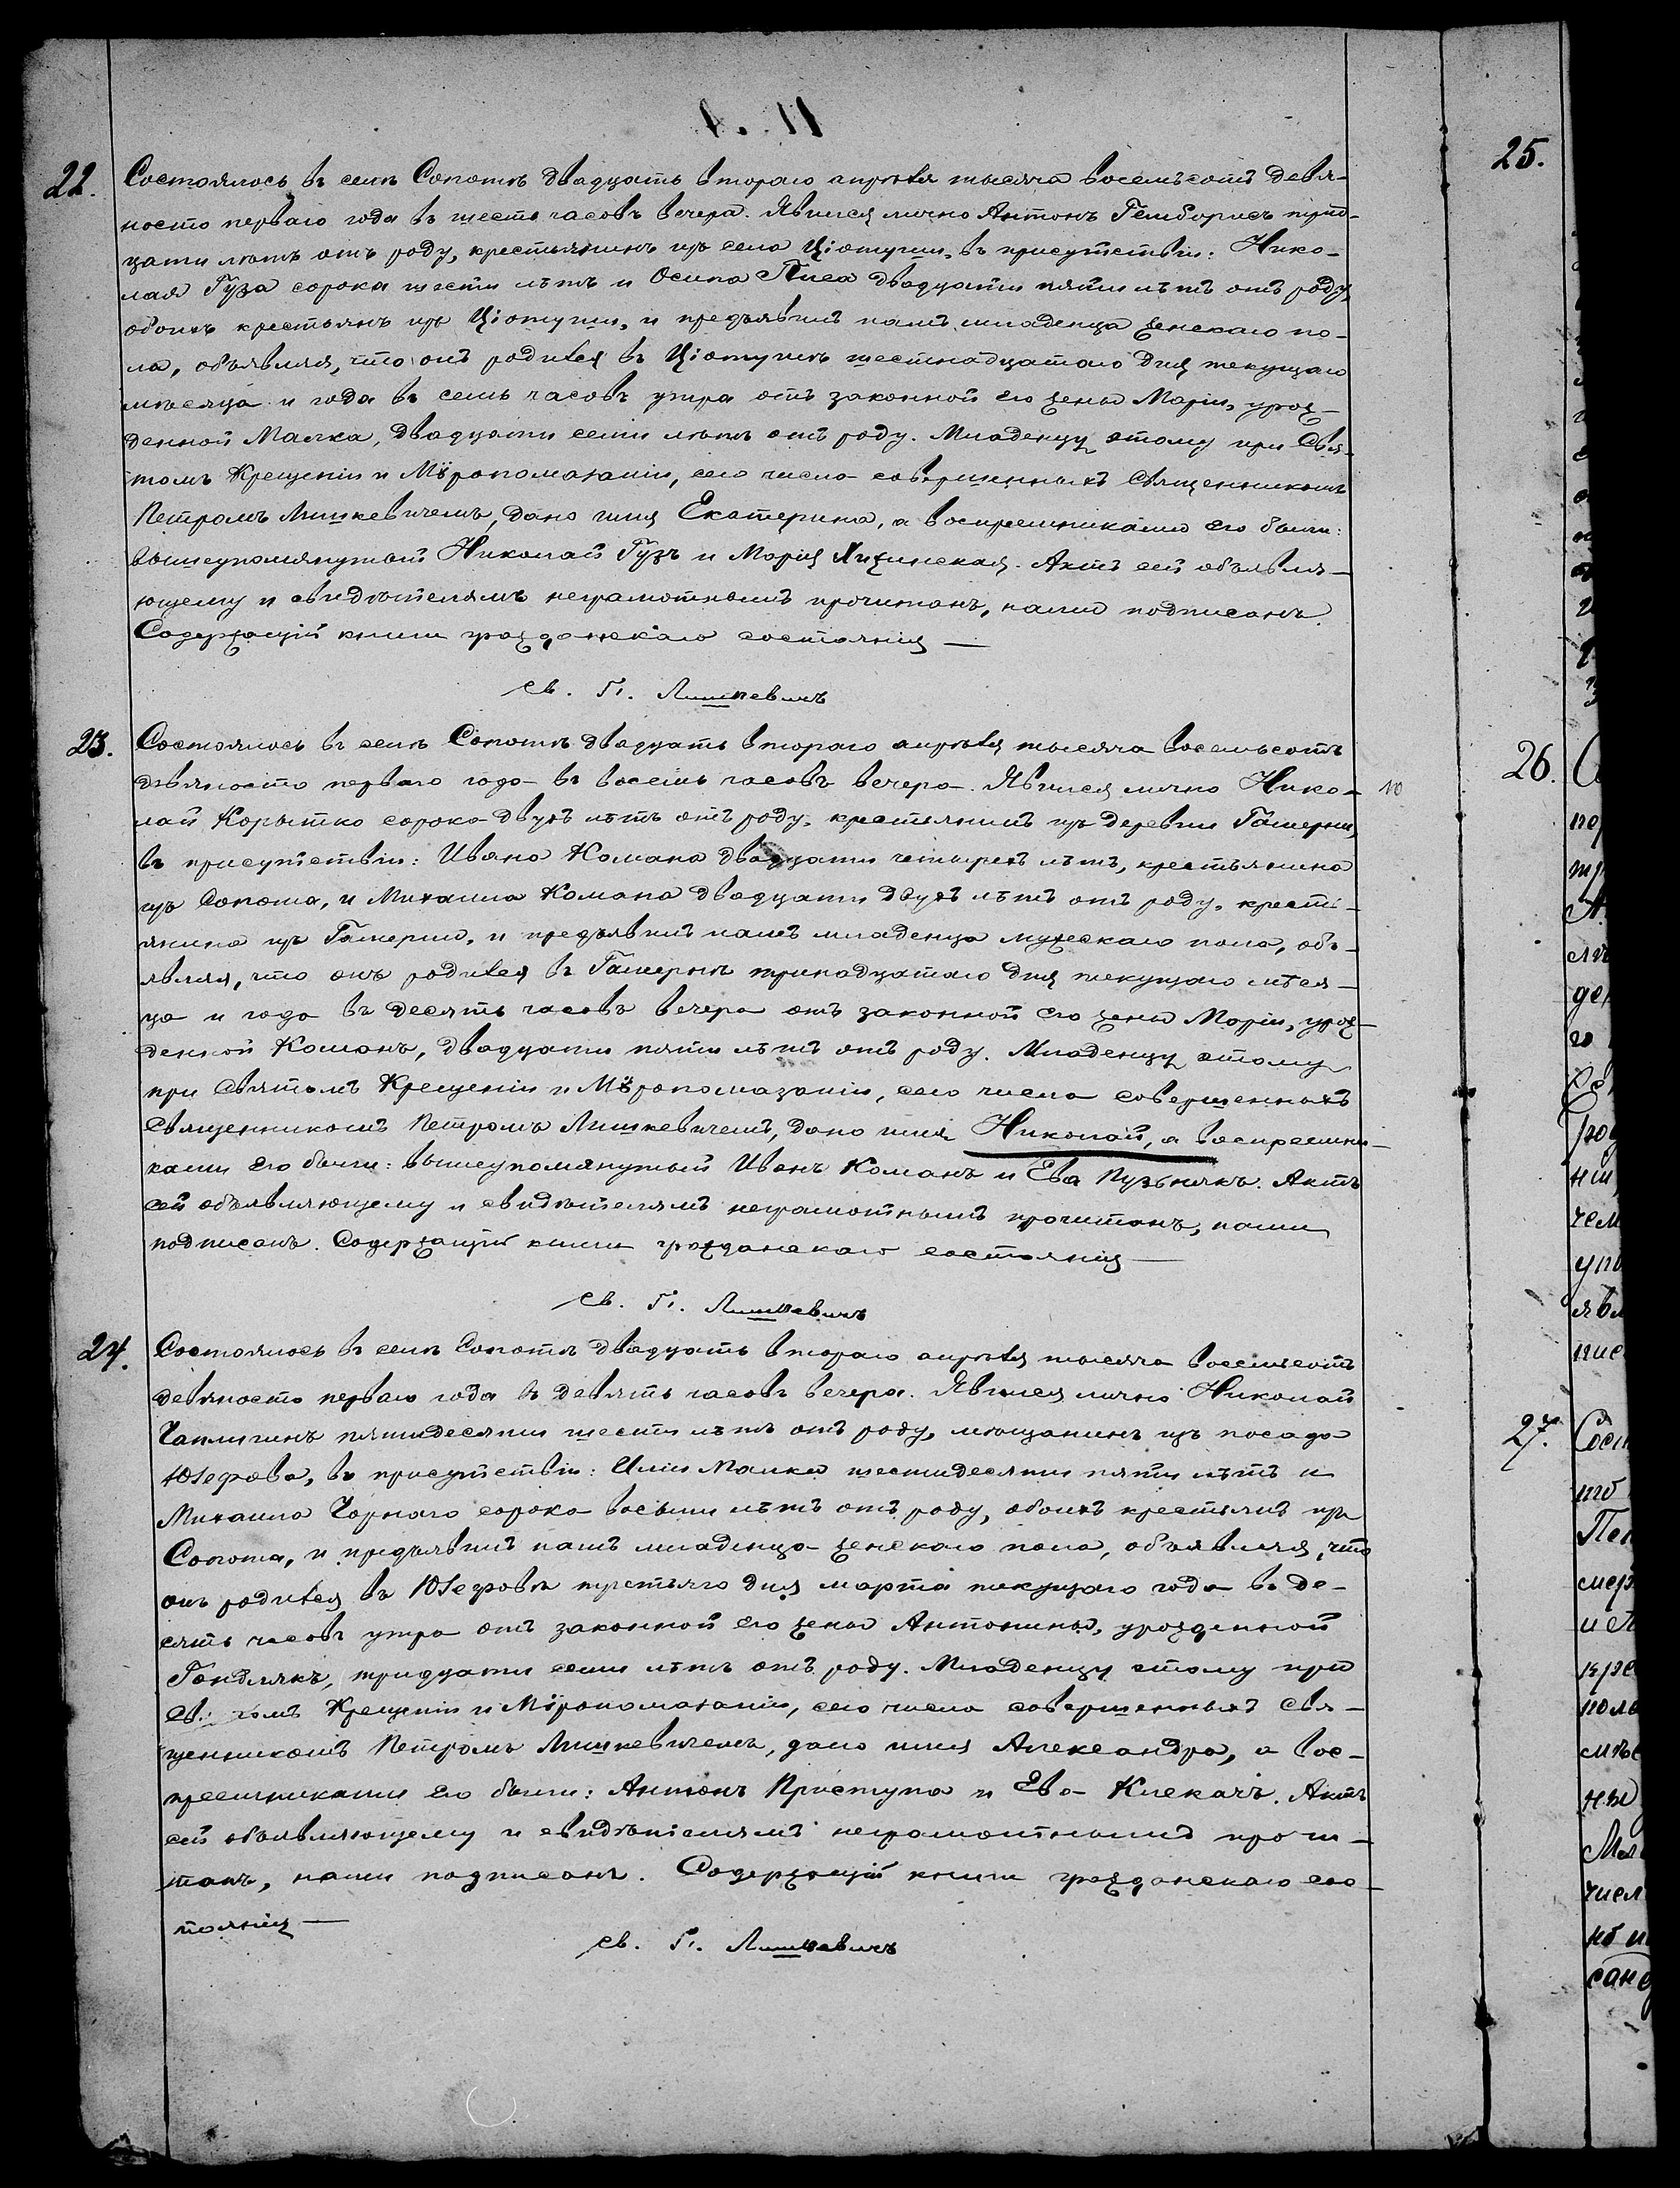 22.
Состоялось въ селѣ Сопотѣ двадцать втораго апрѣля тысяча восемьсотъ девя-
носто перваго года въ шесть часовъ вечера. Явился лично Антонъ Гемборысъ трид-
цати лѣтъ отъ роду, крестьянинъ изъ села Ціотуши, въ присутствіи: Нико-
лая Гуза сорока шести лѣтъ и Осипа двадцати пяти лѣтъ отъ роду,
обоихъ крестьянъ изъ Ціотуши, и предъявилъ намъ младенца женскаго по-
ла, объявляя, что онъ родился въ Ціотушѣ шестнадцатаго дня текущаго
мѣсяца и года въ семь часовъ утра отъ законной его жены Маріи, урож-
денной Малка, двадцати семи лѣтъ отъ роду. Младенцу этому при Свя-
томъ Крещеніи и Мѵропомазаніи, сего числа совершенныхъ Священникомъ
Петромъ Лишкевичемъ, дано имя Екатерина, а воспреемниками его были:
вышеупомянутый Николай Гузъ и Марія Акть сей объявля-
ющему и свидѣтелямъ неграмотнымъ прочитанъ, нами подписанъ.
Содержащій книги гражданскаго состоянія —
св. П. Лишкевичъ
23.
Состоялось въ селѣ Сопотѣ двадцать втораго апрѣля тысяча восемьсотъ
девяносто перваго года въ восемь часовъ вечера. Явился лично Нико-
10
лай Корытко сорока двухъ лѣтъ отъ роду, крестьянинъ изъ деревни Гамерни,
въ присутствіи: Ивана Комана двадцати четырехъ лѣтъ, крестьянина
изъ Сопота, и Михаила Комана двадцати двухъ лѣтъ отъ роду, кресть-
янина изъ Гамерни, и предъявилъ намъ младенца мужескаго пола, объ-
являя, что онъ родился въ Гамернѣ тринадцатаго дня текущаго мѣся-
ца и года въ десять часовъ вечера отъ законной его жены Маріи, урож-
денной Команъ, двадцати пяти лѣтъ отъ роду. Младенцу этому
при Святомъ Крещеніи и Мѵропомазаніи, сего числа совершенныхъ
Священникомъ Петромъ Лишкевичемъ, дано имя Николай, а воспреемни-
ками его были: вышеупомянутый Иванъ Команъ и Ева Пузьнякъ. Актъ
сей объявляющему и свидѣтелямъ неграмотнымъ прочитанъ, нами
подписанъ. Содержащій книги гражданскаго состоянія —
св. П. Лишкевичъ
24.
Состоялось въ селѣ Сопотѣ двадцать втораго апрѣля тысяча восемьсотъ
девяносто перваго года въ девять часовъ вечера. Явился лично Николай
Чаплигинъ пятидесяти шести лѣтъ отъ роду, мѣщанинъ изъ посада
Юзефова, въ присутствіи: Иліи Малка шестидесяти пяти лѣтъ и
Михаила Чорнаго сорока восьми лѣтъ отъ роду, обоихъ крестьянъ изъ
Сопота, и предъявилъ намъ младенца женскаго пола, объявляя, что
онъ родился въ Юзефовѣ третьяго дня марта текущаго года въ де-
сять часовъ утра отъ законной его жены Антонины, урожденной
Гондлякъ, тридцати семи лѣтъ отъ роду. Младенцу этому при
Св. томъ Крещеніи и Мѵропомазаніи, сего числа совершенныхъ Свя-
щенникомъ Петромъ Лишкевичемъ, дано имя Александра, а вос-
преемниками его были: Антонъ Приступа и Ева Клекачъ. Актъ
сей объявляющему и свидѣтелямъ неграмотнымъ прочи-
танъ, нами подписанъ. Содержащій книги гражданскаго сос-
тоянія —
св. П. Лишкевичъ
25.
26.
27.